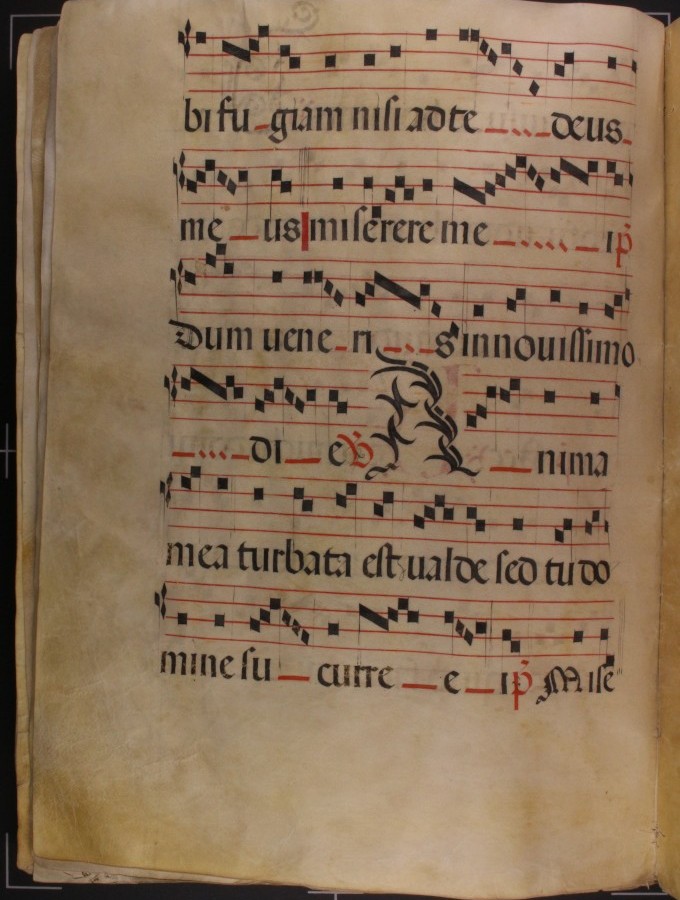 bi fu_giam nisi ad te _...._deus_
me _ us miserere me _....._ ip̃
Dum uene_ri_..._s in nouissimo
_...._di_e ℣ A_nima
mea turbata est ualde sed tu do
mine su_curre_e_ip̃ Mise